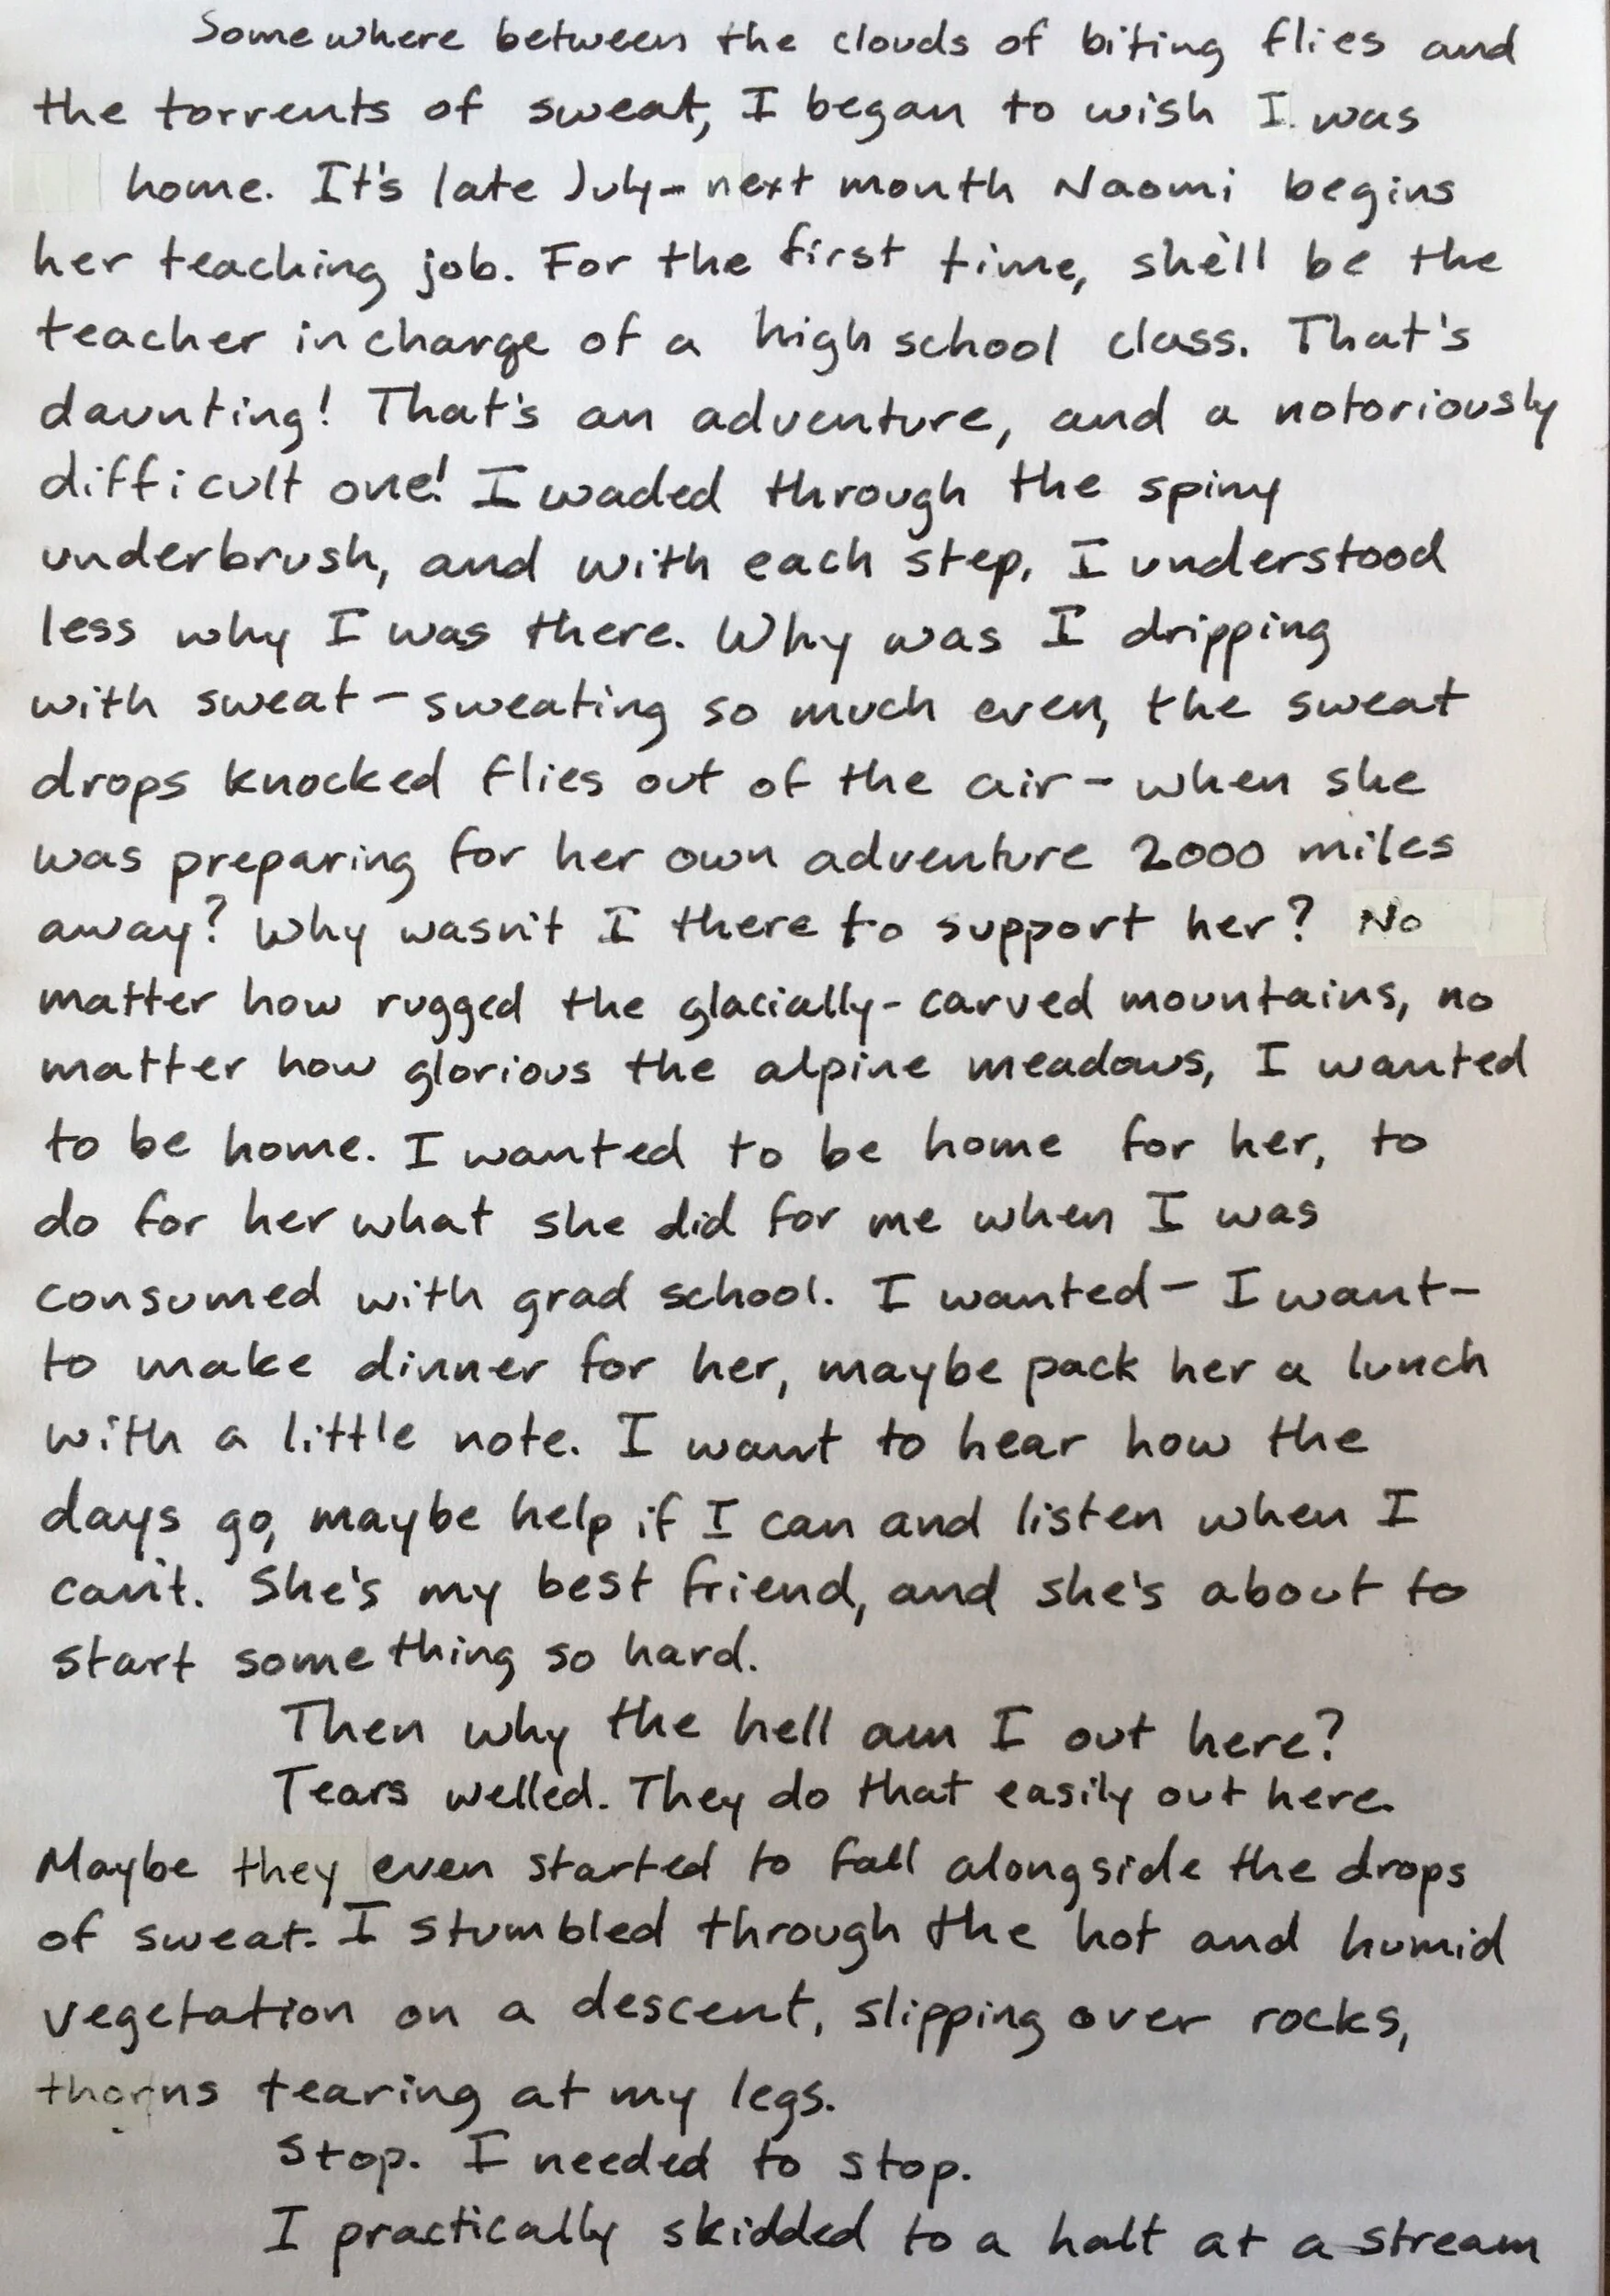 Somewhere between the clouds of biting flies and
the torrents of sweat, I began to wish I was
home. It's late July - next month Naomi begins
her teaching job. For the first time, she'll be the
teacher in charge of a high school class. That's
daunting! That's an adventure, and a notoriously
difficult one! I waded through the spiny
underbrush, and with each step, I understood
less why I was there. Why was I dripping
with sweat - sweating so much even, the sweat
drops knocked flies out of the air - when she
was preparing for her own adventure 2000 miles
away? Why wasn't I there to support her? No
matter how rugged the glacially-carved mountains, no
matter how glorious the alpine meadows, I wanted
to be home. I wanted to be home for her, to
do for her what she did for me when I was
consumed with grad school. I wanted - I want -
to make dinner for her, maybe pack her a lunch
with a little note. I want to hear how the
days go, maybe help if I can and listen when I
can't. She's my best friend, and she's about to
start something so hard.
Then why the hell am I out here?
Tears welled. They do that easily out here.
Maybe they even started to fall alongside the drops
of sweat. I stumbled through the hot and humid
vegetation on a descent, slipping over rocks,
thorns tearing at my legs.
Stop. I needed to stop.
I practically skidded to a halt at a stream